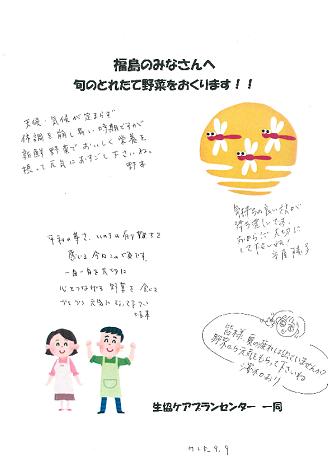 福島のみなさんへ
旬のとれたて野菜をおくります！！
天候・気候が定まらず
体調を崩し易い時期ですが
新鮮野菜でおいしく栄養を
摂って元気におすごし下さいね。
気持ちの良い
待ち遠しいです。
おからだ大切に
して下さいね！
平和の尊さ、いのちの有り難さを
感じる今日この頃です。
一日一日を大切に
心をつなげる野菜を食べて
皆様、夏の疲れは出ていませんか？
野菜から元気をもらって下さいね
生協ケアプランセンター　一同
9.9